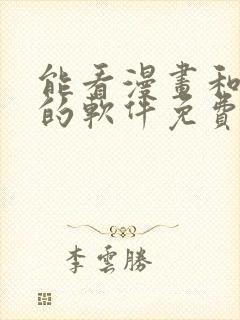 能看漫畫和
的軟件免費
李雲勝